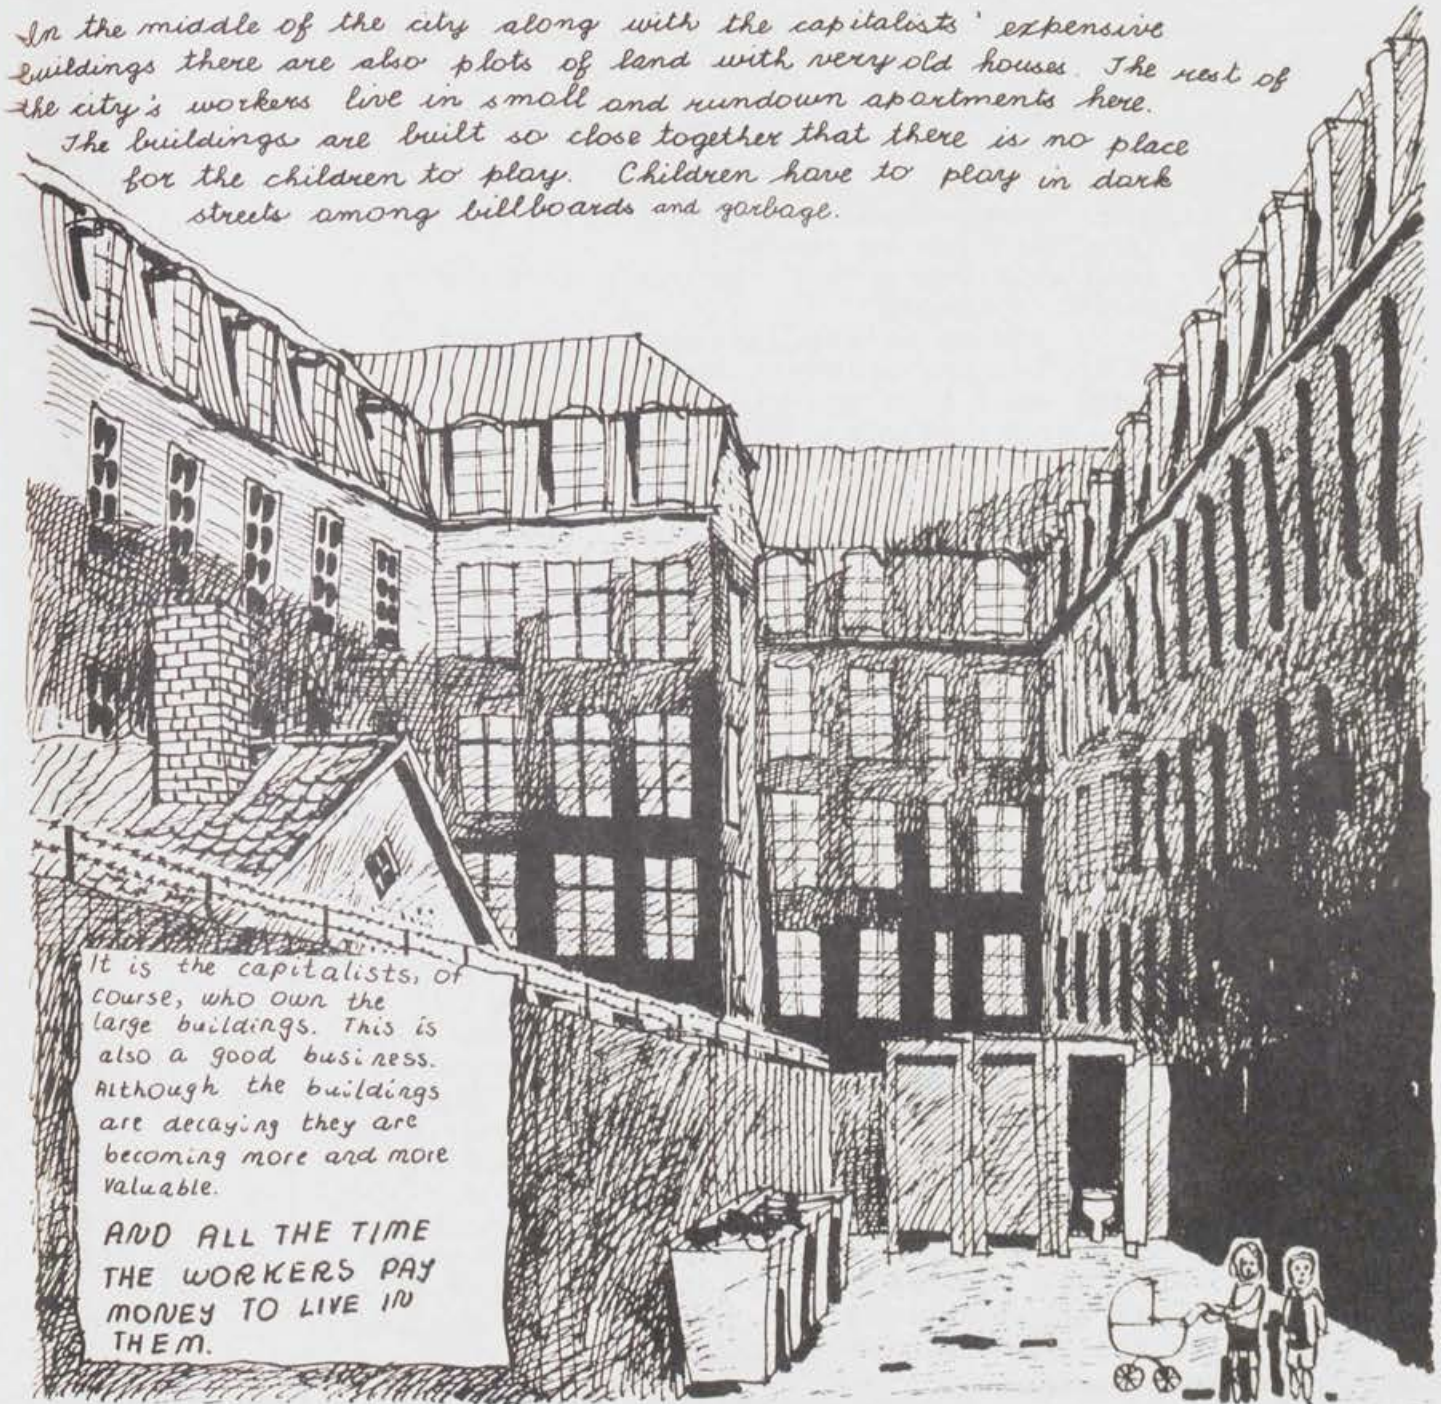 In the middle of the city along with the capitalists' expensive
buildings there are also plots of land with very old houses. The rest of
the city's workers live in small and rundown apartments here.
The buildings are built so close together that there is no place
for the children to play. Children have to play in dark
streets among billboards and garbage.
It is the capitalists, of
course, who own the
large buildings. This is
also a good business.
Although the buildings
are decaying they are
becoming more and more
valuable.
AND ALL THE TIME
THE WORKERS PAY
MONEY TO LIVE IN
THEM.